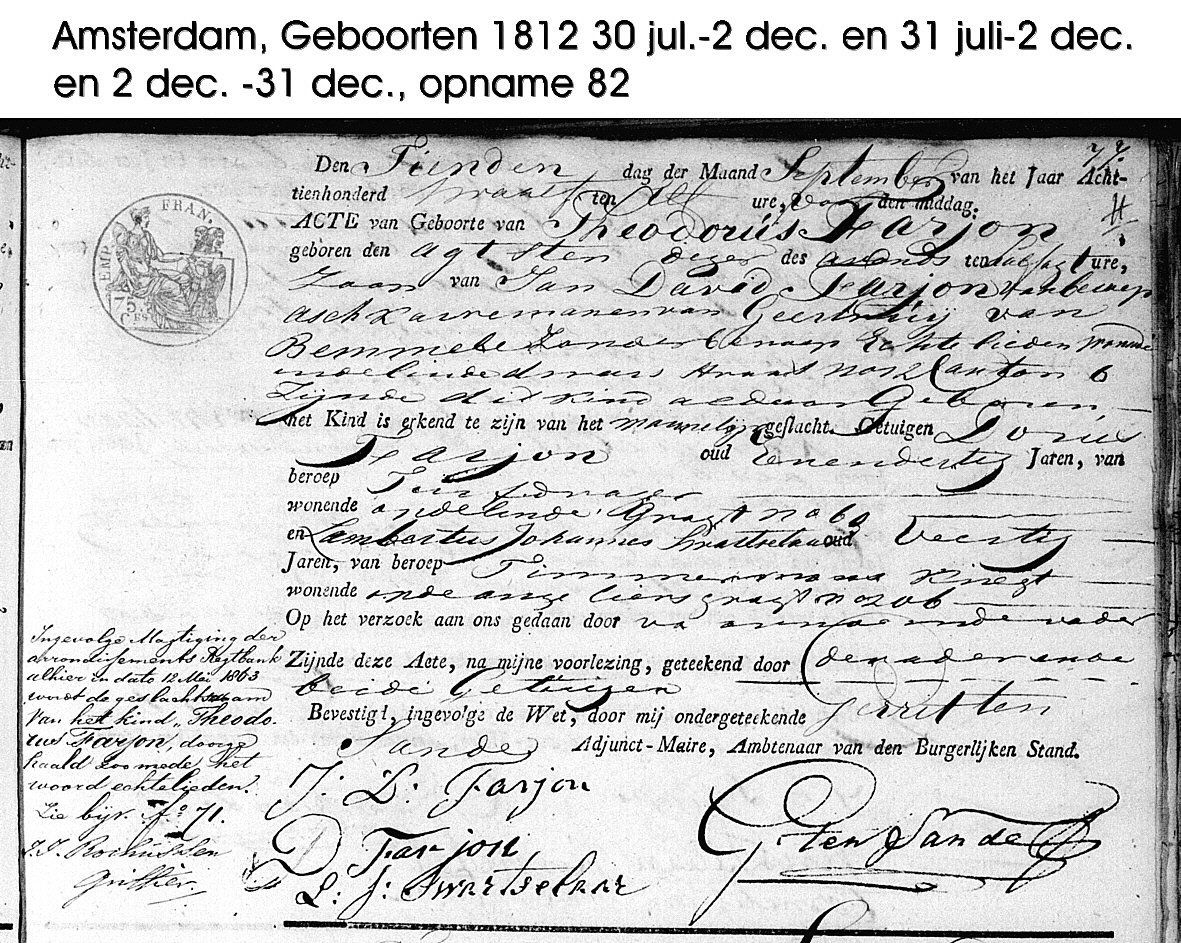 Amsterdam, Geboorten 1812 30 jul.-2 dec. en 31 juli-2 dec.
en 2 dec. -31 dec., opname 82
Den Tienden dag der Maand September van het Jaar Acht-
tienhonderd twaalf ten Elf ure, voor den middag.
ACTE van Geboorte van Theodorus Farjon
geboren den agtsten dezer des avonds ten half agt ure,
Zoon van Jan David Farjon van beroep
aschkarreman en van Geertruij van
Bemmele Zonder beroep Echtelieden
straat no 12 Canton 6
Zijnde dit kind aldaar Geboren
het Kind is erkend te zijn van het mannelijk geslacht. Getuigen Dorus
Farjon oud Eenendertig Jaren, van
beroep Turfdrager
wonende op de linde Gragt no 60
en Lambertus Johannes Swartselaar oud Veertig
Jaren, van beroep Timmermans knegt
wonende op de angeliersgragt no 206
Op het verzoek aan ons gedaan door vader
Zijnde deze Acte, na mijne voorlezing, geteekend door de vader en de
beide Getuigen
Bevestigt, ingevolge de Wet, door mij ondergeteekende Gerrit ten
Sande Adjunct-Maire, Ambtenaar van den Burgerlijken Stand.
J: D: Farjon
D Farjon
L: J: Swartselaar
G ten Sande
EMP. FRAN.
75
Cs
Ingevolge Magtiging der
arrondissements Regtbank
alhier in dato 12 Mei 1863
wordt de geslachtsnaam
van het kind „Theodo-
rus Farjon, doorge
haald zoo mede het
woord echtelieden.
Zie bijl. No 71.
Rochussen
Griffier